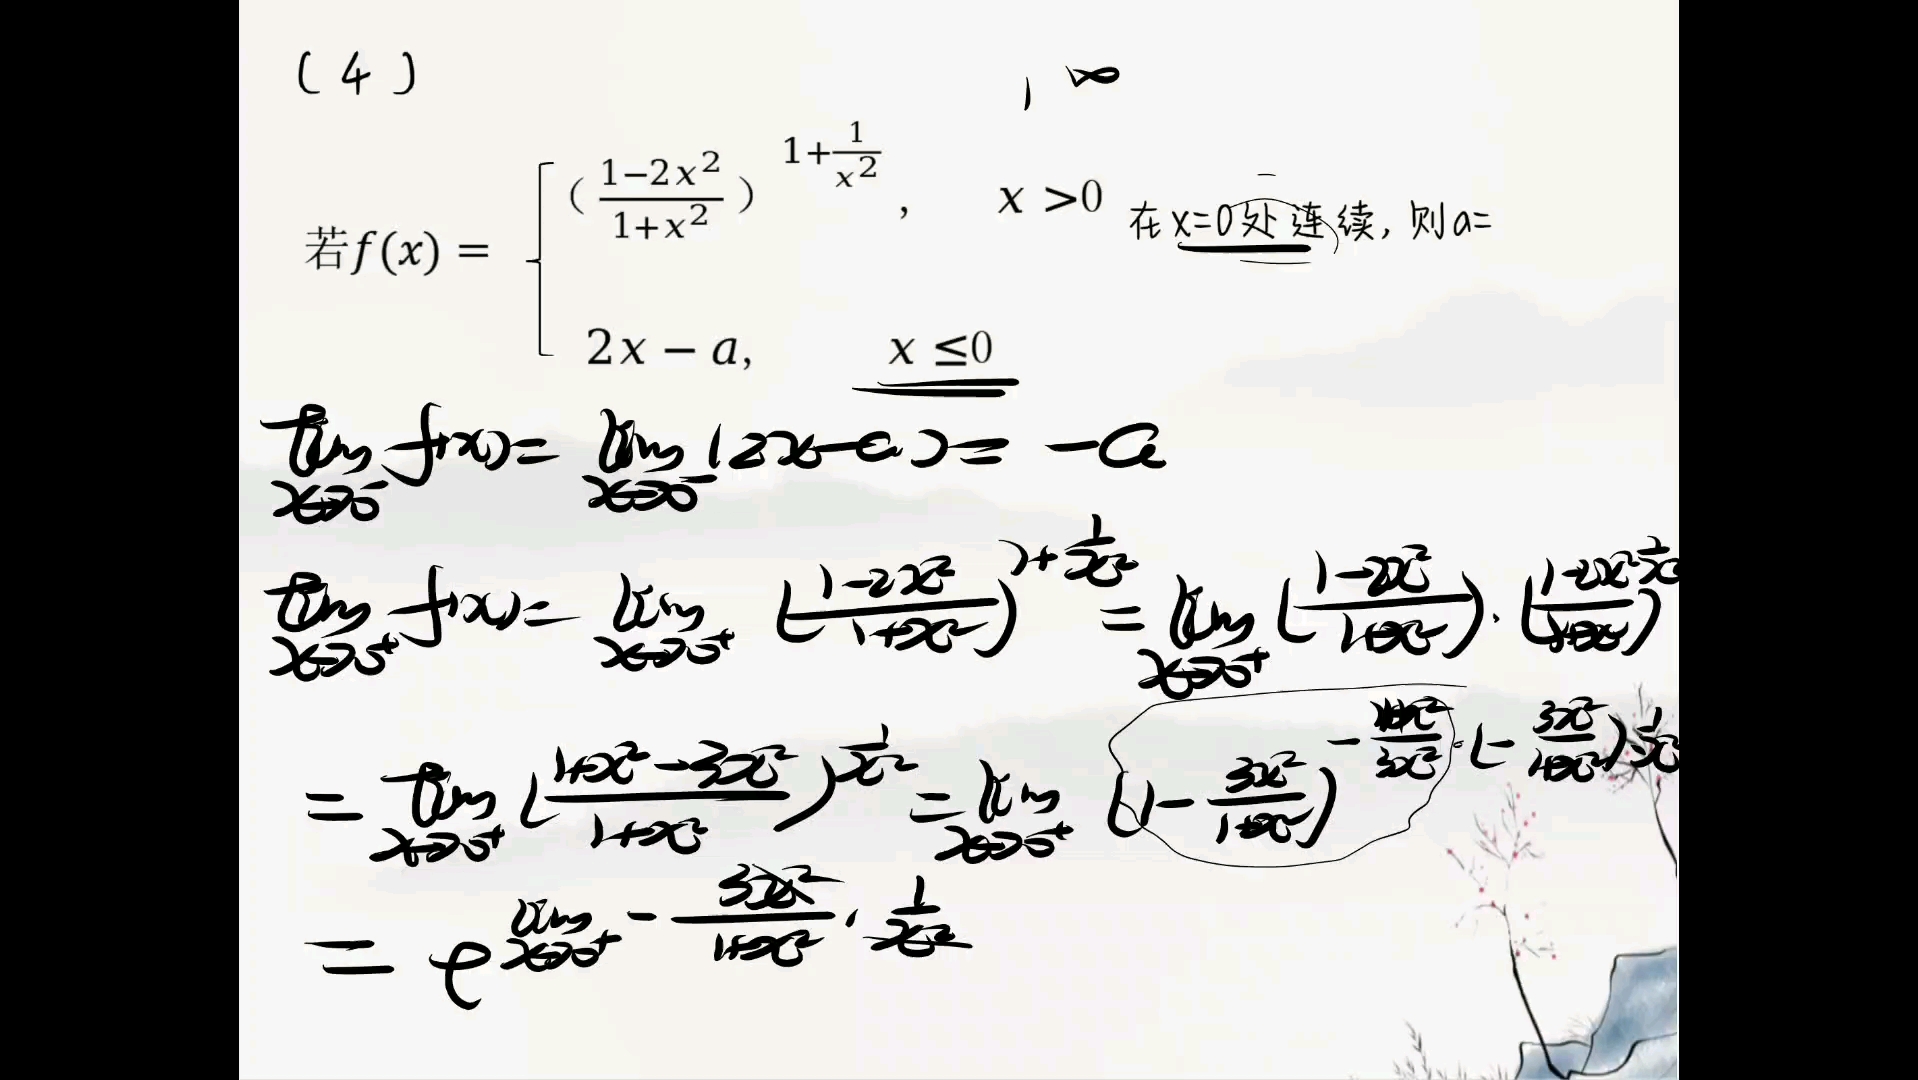 (4)
1^∞
若f(x) = { ((1−2x²)/(1+x²))^(1+1/x²), x >0
2x − a, x ≤0
在x=0处连续, 则a=
lim x→0⁻ f(x) = lim x→0⁻ (2x−a) = −a
lim x→0⁺ f(x) = lim x→0⁺ ((1−2x²)/(1+x²))^(1+1/x²) = lim x→0⁺ ((1−2x²)/(1+x²)) · ((1−2x²)/(1+x²))^(1/x²)
= lim x→0⁺ ((1+x²−3x²)/(1+x²))^(1/x²) = lim x→0⁺ (1−3x²/(1+x²))^(−(1+x²)/(3x²) · (−3x²/(1+x²)) · 1/x²)
= e^(lim x→0⁺ −3x²/(1+x²) · 1/x²)